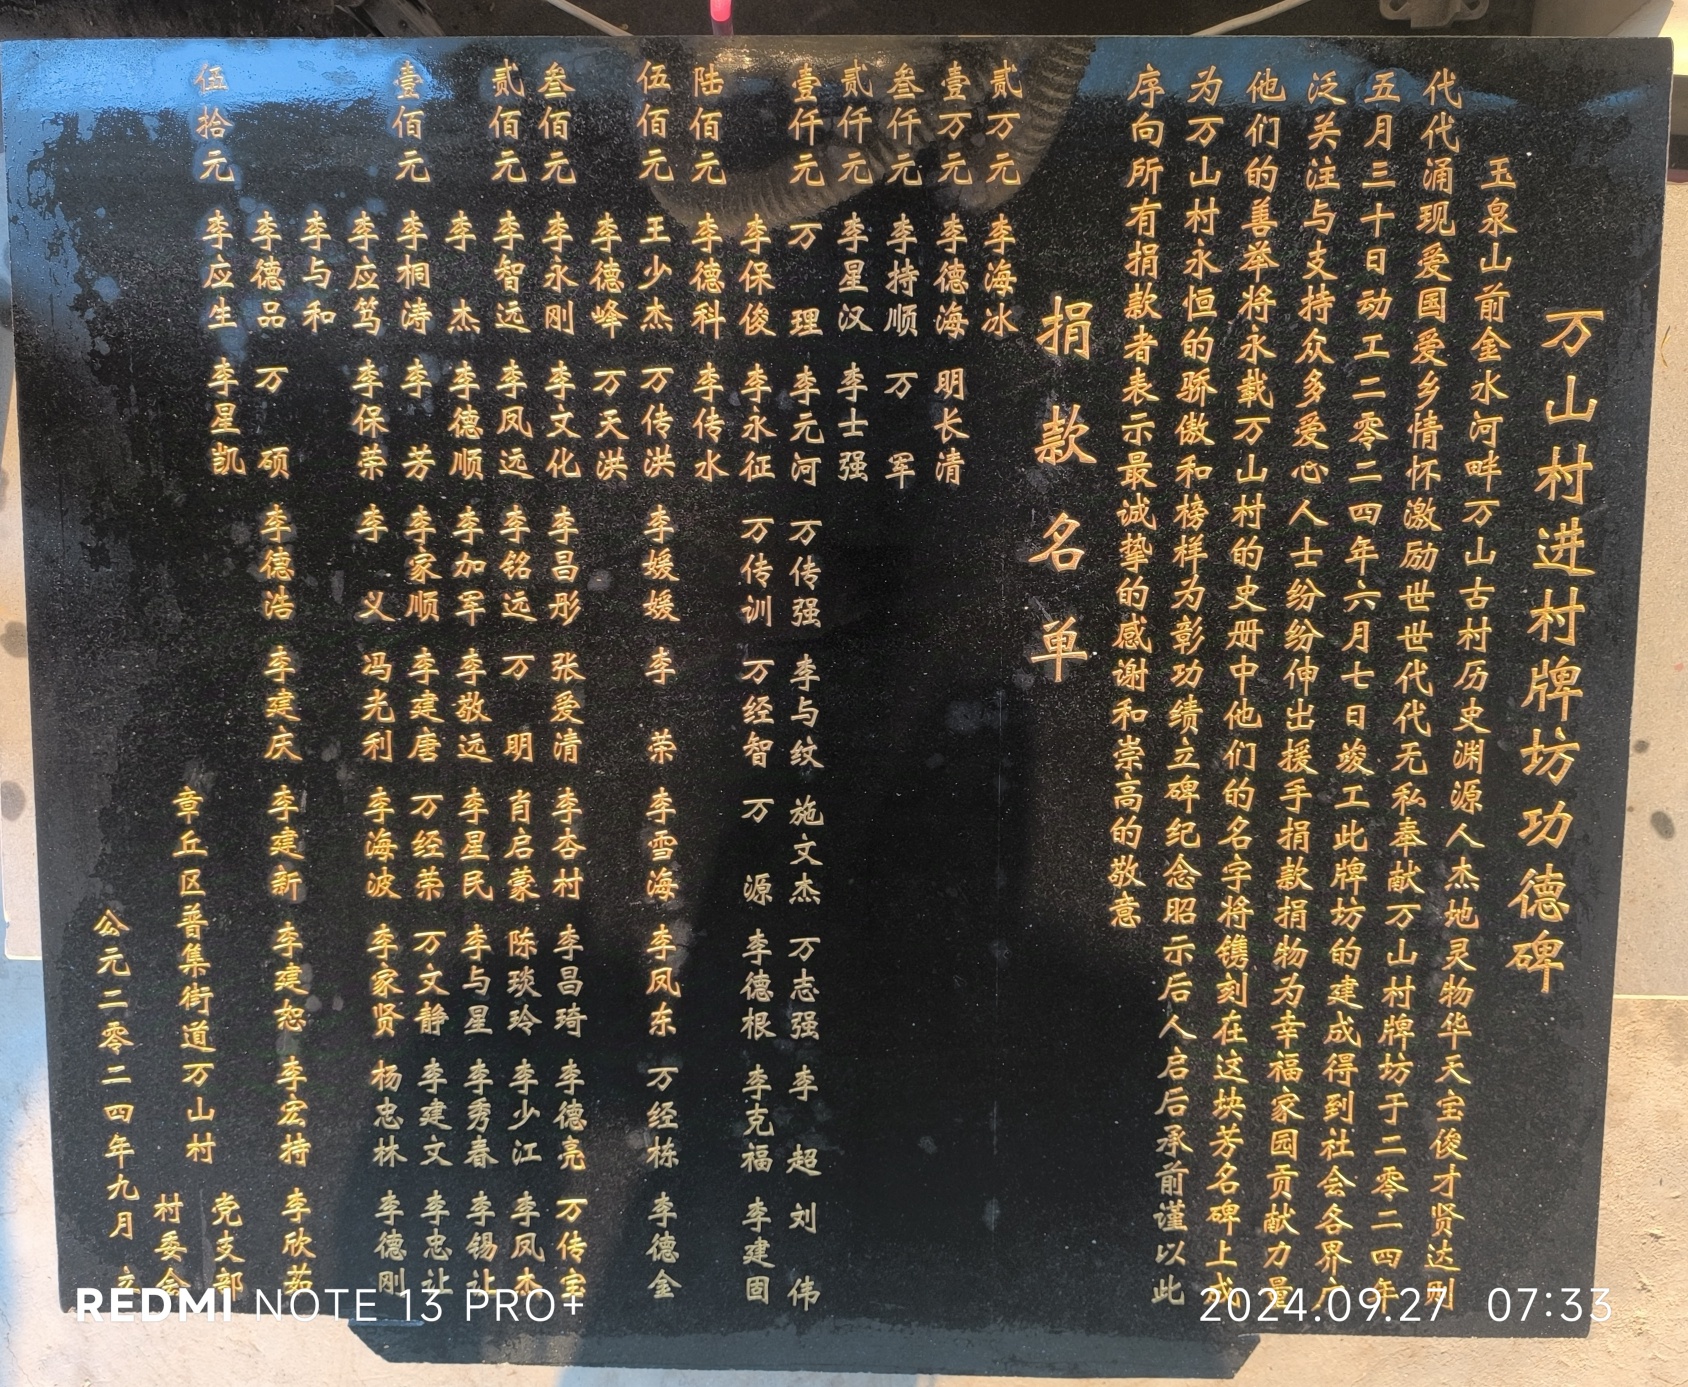 万山村进村牌坊功德碑
玉泉山前金水河畔万山古村历史渊源人杰地灵物华天宝俊才贤达则
代代涌现爱国爱乡情怀激励世世代代无私奉献万山村牌坊于二零二四年
五月三十日动工二零二四年六月七日竣工此牌坊的建成得到社会各界广
泛关注与支持众多爱心人士纷纷伸出援手捐款捐物为幸福家园贡献力量
他们的善举将永载万山村的史册中他们的名字将镌刻在这块芳名碑上成
为万山村永恒的骄傲和榜样为彰功绩立碑纪念昭示后人启后承前谨以此
序向所有捐款者表示最诚挚的感谢和崇高的敬意
捐款名单
贰万元 李海冰
壹万元 李德海 明长清
叁仟元 李持顺 万军
贰仟元 李星汉 李士强
壹仟元 万理 李元河 万传强 李与纹 施文杰 万志强 李超 刘伟
李保俊 李永征 万传训 万经智 万源 李德根 李克福 李建固
陆佰元 李德科 李传水
伍佰元 王少杰 万传洪 李媛媛 李荣 李雪海 李凤东 万经栋 李德金
李德峰 万天洪
叁佰元 李永刚 李文化 李昌彤 张爱清 李杏村 李昌琦 李德亮 万传宝
贰佰元 李智远 李凤远 李铭远 万明 肖启蒙 陈琰玲 李少江 李凤杰
李杰 李德顺 李加军 李敬远 李星民 李与星 李秀春 李锡让
壹佰元 李桐涛 李芳 李家顺 李建唐 万经荣 万文静 李建文 李忠让
李应笃 李保荣 李义 冯光利 李海波 李家贤 杨忠林 李德刚
李与和
李德品 万硕 李德浩 李建庆 李建新 李建恕 李宏持 李欣茹
伍拾元 李应生 李星凯
章丘区普集街道万山村
党支部
村委会
公元二零二四年九月 立
REDMI NOTE 13 PRO+
2024.09.27 07:33